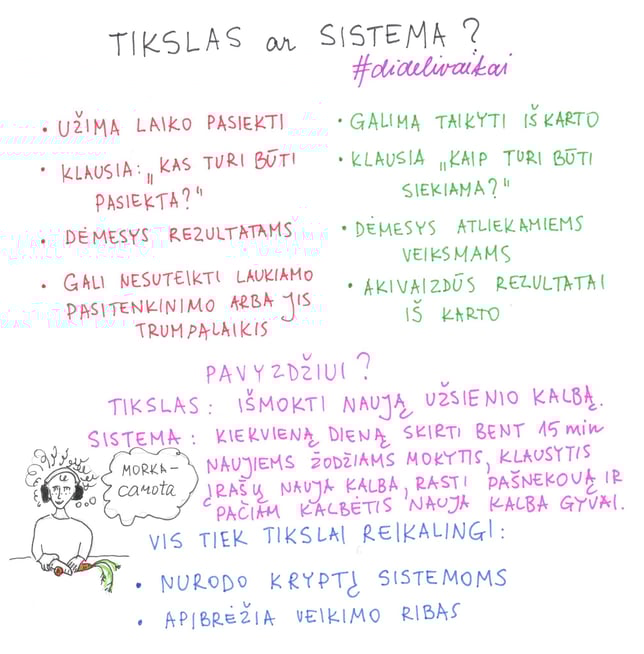 TIKSLAS ar SISTEMA?
#didelivaikai
• UŽIMA LAIKO PASIEKTI
• KLAUSIA: „KAS TURI BŪTI
PASIEKTA?"
• DĖMESYS REZULTATAMS
• GALI NESUTEIKTI LAUKIAMO
PASITENKINIMO ARBA JIS
TRUMPALAIKIS
• GALIMA TAIKYTI IŠ KARTO
• KLAUSIA „KAIP TURI BŪTI
SIEKIAMA?"
• DĖMESYS ATLIEKAMIEMS
VEIKSMAMS
• AKIVAIZDŪS REZULTATAI
IŠ KARTO
PAVYZDŽIUI?
TIKSLAS: IŠMOKTI NAUJĄ UŽSIENIO KALBĄ.
SISTEMA: KIEKVIENĄ DIENĄ SKIRTI BENT 15 min
NAUJIEMS ŽODŽIAMS MOKYTIS, KLAUSYTIS
ĮRAŠŲ NAUJA KALBA, RASTI PAŠNEKOVĄ IR
PAČIAM KALBĖTIS NAUJA KALBA GYVAI.
MORKA-
carota
VIS TIEK TIKSLAI REIKALINGI:
• NURODO KRYPTĮ SISTEMOMS
• APIBRĖŽIA VEIKIMO RIBAS